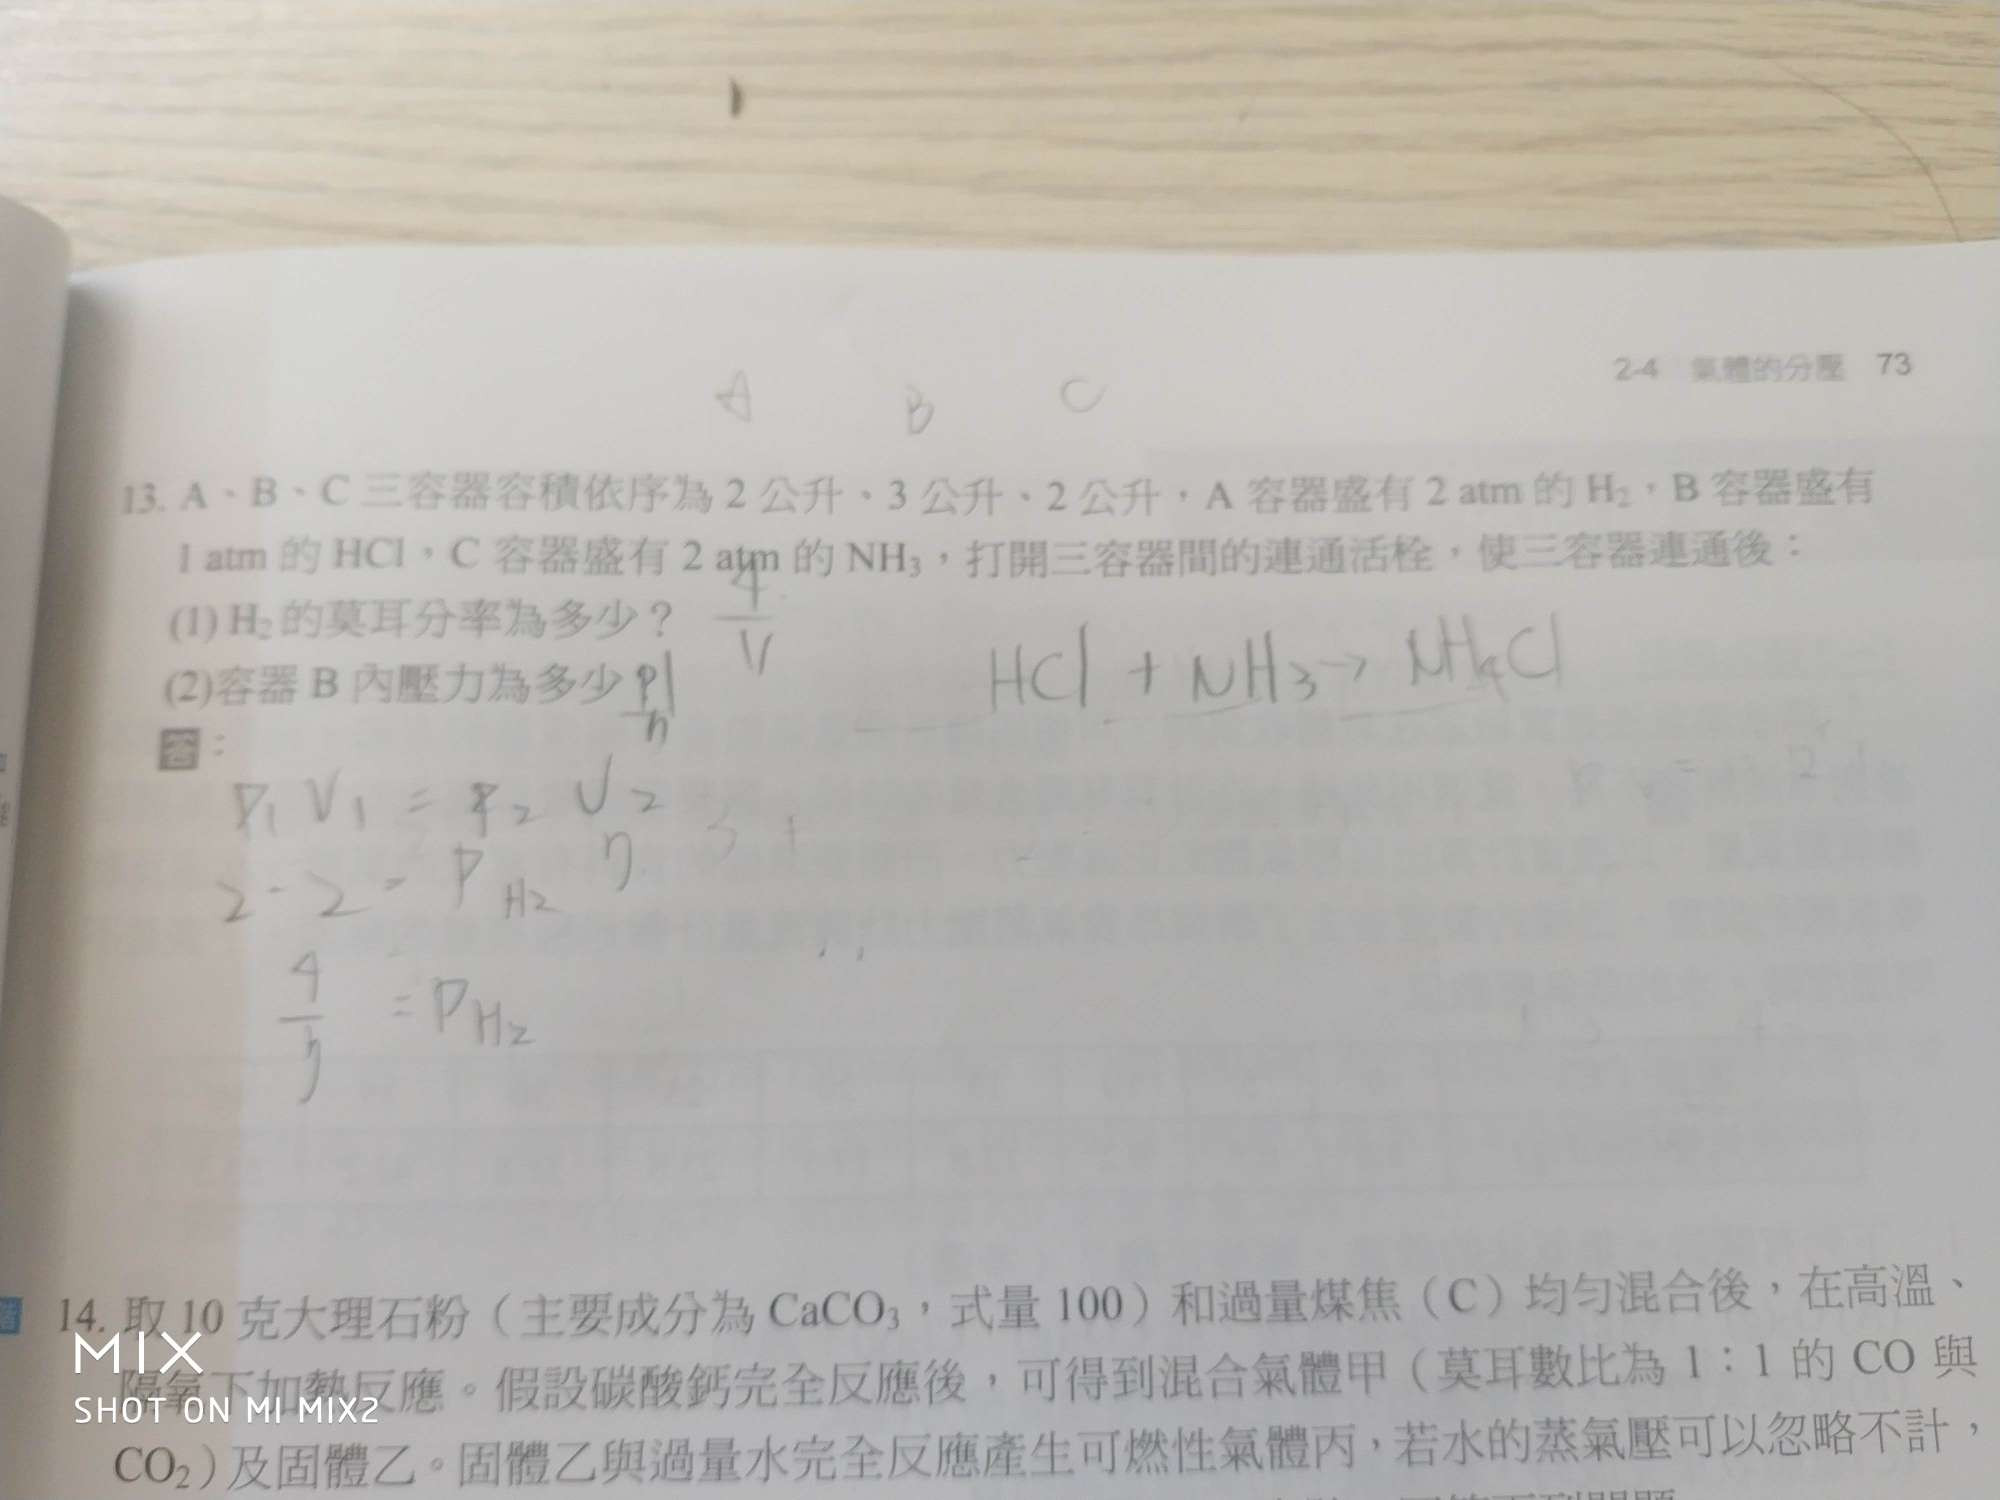 2-4 氣體的分壓 73
A B C
13. A、B、C 三容器容積依序為 2 公升、3 公升、2 公升，A 容器盛有 2 atm 的 H₂，B 容器盛有
1 atm 的 HCl，C 容器盛有 2 atm 的 NH₃，打開三容器間的連通活栓，使三容器連通後：
(1) H₂ 的莫耳分率為多少？
(2)容器 B 內壓力為多少
HCl + NH3 → NH4Cl
答：
P1 V1 = P2 V2
2 · 2 = P H2 7
4/7 = P H2
14. 取 10 克大理石粉（主要成分為 CaCO₃，式量 100）和過量煤焦（C）均勻混合後，在高溫、
隔氧下加熱反應。假設碳酸鈣完全反應後，可得到混合氣體甲（莫耳數比為 1：1 的 CO 與
CO₂）及固體乙。固體乙與過量水完全反應產生可燃性氣體丙，若水的蒸氣壓可以忽略不計，
MIX
SHOT ON MI MIX2